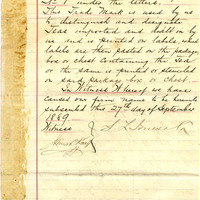 No 1 under the letters.
This Trade Mark is used by us
to distinguish and designate
Teas imported and dealt in by
us and is printed on labels which
labels are then pasted on the package
box or chest containing the Tea
or the same is printed or stenciled
on said package box or chest.
In Witness Whereof we have
caused our firm name to be hereunto
subscribed this 27th day of September
1869.
Witness